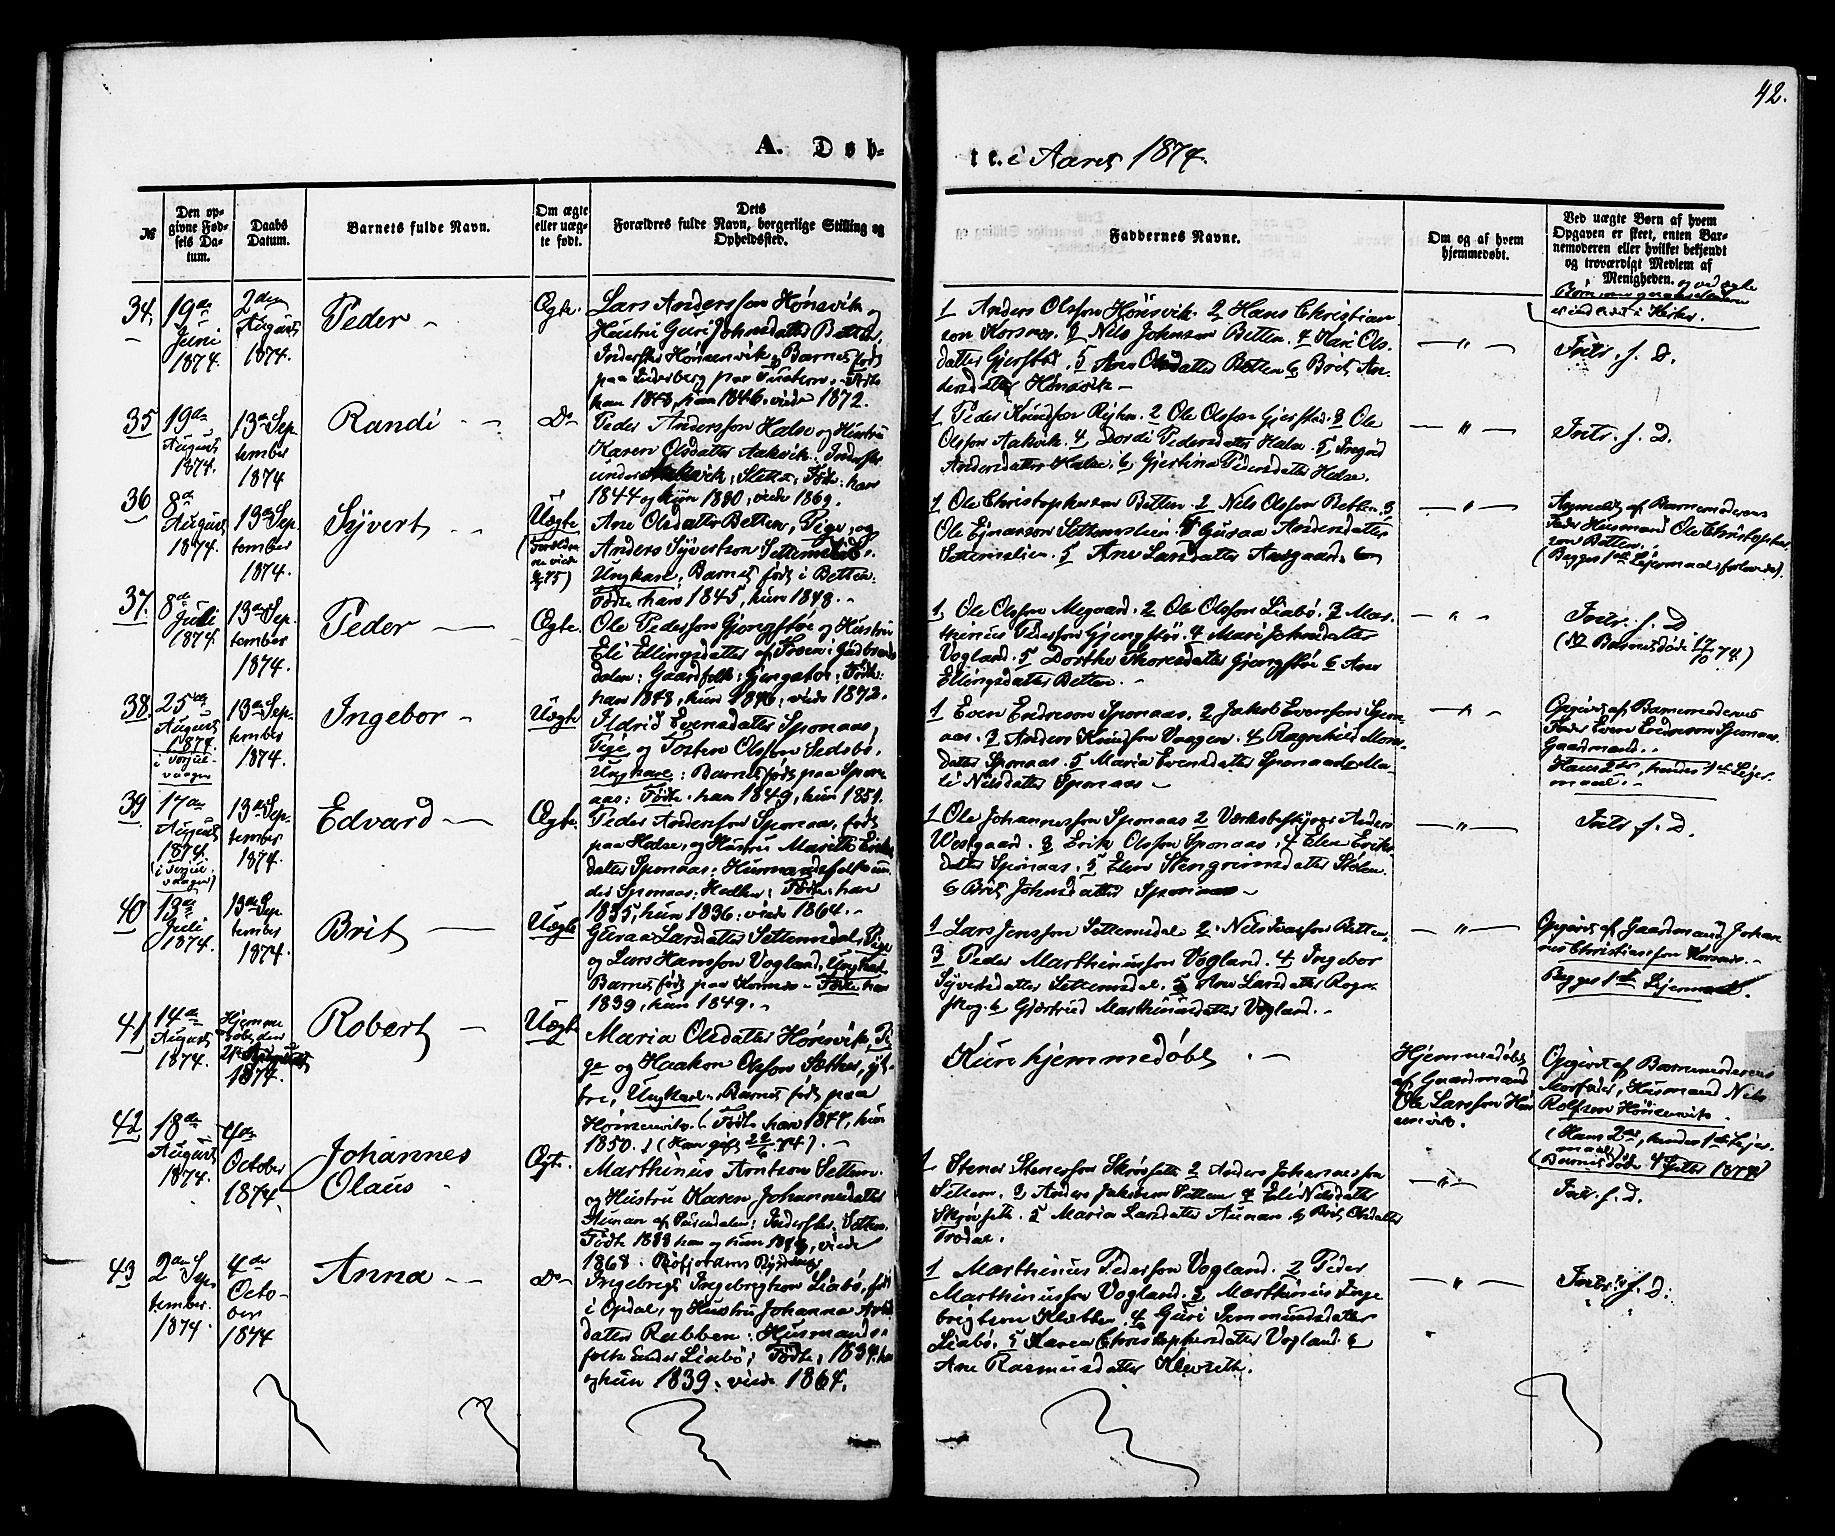 42.
A. Døb-
te. i Aaret 1874.
№
Den op-
givne Fød-
sels Da-
tum.
Daabs
Datum.
Barnets fulde Navn.
Om ægte
eller uæg-
te født.
Dets
Forældres fulde Navn, borgerlige Stilling og
Opholdssted.
Faddernes Navne.
Om og af hvem
hjemmedøbt.
Ved uægte Børn af hvem
Opgaven er skeet, enten Bar-
nemoderen eller hvilket bekjendt
og troværdigt Medlem af
Menigheden.
34.
19de
Juni
1874.
2den
August
1874.
Peder
Ægte.
Lars Anderssøn Hønsvik og
Hustru Guri Johnsdatter Betten,
han 1848, hun 1846. viede 1872.
1 Anders Olssøn Hønsvik. 2 Hans Christian-
søn Korsnes. 3 Nils Johnsøn Betten. 4 Kari Ols-
datter Gjerstad. 5 Ane Olsdatter Betten 6 Brit An-
dersdatter Hønsvik
— " —
Indr. f. D.
35
19de
August
1874.
13de Sep-
tember
1874
Randi
Do
Peder Anderssøn Halse og Hustru
Karen Olsdatter Aakvik. Inderster
Født: han
1844 og hun 1880, viede 1869.
1 Peder Knudsøn 2 Ole Olssøn Gjerstad. 3 Ole
Olssøn Aakvik. 4 Dordi Pedersdatter Halse. 5 Ingrid
Andersdatter Halse. 6 Gjertina Pedersdatter Halse.
— " —
Indr. f. D.
36
8de
August
1874.
13de Sep-
tember
1874.
Syvert
Uægte
(Foreldre
ne viede
75)
Ane Olsdatter Betten, Pige, og
Anders Syvertsøn Settemslie,
Ungkarl, Barnet født i Betten.
Født han 1845, hun 1848.
1 Ole Christophersøn Betten. 2 Nils Olssøn Betten. 3
Ole Ejnarsøn Settemslien 4 Guraa Andersdatter
Settemslien. 5 Ane Larsdatter Aasgaard.
— " —
Anmeldt af Barnemoderens
Fader Husmand Ole Christopher
søn Betten.
(Begges 1ste Lejermaal
37.
8de
Juli
1874.
13de Sep-
tember
1874.
Peder
Ægte.
Ole Pederssøn Gjengstøe og Hustru
Eli Ellingsdatter af i Gudbrands
dalen: Gaardfolk: Gjengstøe: Født:
han 1848, hun 1846, viede 1872.
1 Ole Olssøn Megaard. 2 Ole Olssøn Liabø. 3 Mar-
thinus Pederssøn Gjengstøe. 4 Mari Johnsdatter
Vogland. 5 Dorthe Thoresdatter Gjengstøe 6 Ane
Ellingsdatter Betten.
— " —
Indr. f. D
(NB Barnet døde 17/10 74)
38.
25de
August
1874.
i Torjul-
vaagen
13de Sep-
tember
1874.
Ingebor
Uægte
Ildrid Evensdatter Sponaas,
Pige, og Torsten Olssøn Sedsbø,
Ungkarl: Barnet født paa Spon-
aas: Født. han 1849, hun 1851.
1 Even Endresøn Sponaas. 2 Jakob Evenssøn Spon-
aas. 3 Anders Knudsøn Vaagen. 4 Ragnhild Mons-
datter Sponaas. 5 Maria Evensdatter Sponaas 6 Ma-
li Nilsdatter Sponaas
— " —
Opgivet af Barnemoderens
Fader Even Endresøn Sponaas
Gaardmand.
Hans 2den, hendes 1ste Lejer-
maal.
39
17de
August
1874.
(i Torjul-
vaagen)
13de Sep-
tember
1874.
Edvard
Ægte.
Peder Anderssøn Sponaas, født
paa Halse, og Hustru Marith Eriks-
datter Sponaas: Husmandsfolk un-
der Sponaas: Født: han
1835, hun 1836: viede 1864.
1 Ole Johannessøn Sponaas 2 Værksbestyrer Anders
Westgaard. 3 Erik Olssøn Sponaas. 4 Elen Eriks-
datter Sponaas. 5 Elen Stengrimsdatter Stølen.
6 Brit Johnsdatter Sponaas
— " —
Indr. f. D.
40
13de
Juli
1874.
13de Sep-
tember
1874.
Brit
Uægte
Guraa Larsdatter Settemsdal, Pige
og Lars Hanssøn Vogland, Ungkarl.
Barnet født paa Korsnes. Født han
1839, hun 1849.
1 Lars Jenssøn Settemsdal 2. Nils Betten.
3 Peder Marthinussøn Vogland. 4 Ingebor
Syversdatter Settemsdal. 5 Ane Larsdatter Rogn-
skog. 6 Gjertrud Marthinusdatter Vogland.
— " —
Opgivet af Gaardmand Johan-
nes Christianssøn Korsnes.
Begges 1ste Lejermaal.
41
14de
August
1874.
Hjemme
døbt den
August
1874.
Robert
Uægte
Maria Olsdatter Hønsvik, Pi-
ge og Haakon Olssøn Sæther, yt-
tre, Ungkarl. Barnet født paa
Hønsenvik. (Født han 1847, hun
1850.) (Han gift 22/6 74).
Kun hjemmedøbt.
Hjemmedøbt
af Gaardmand
Ole Larssøn Høn
senvik.
Opgivet af Barnemoderens
Morfader, Husmand Nils
Rolfsøn Hønsenvik.
(Hans 2den, hendes 1ste Lejer-
maal)
42
18de
August
1874.
4de
October
1874
Johannes
Olaus
Ægte.
Marthinus Arntsøn Settem
og Hustru Karen Johannesdatter
Aunan af Surendalen: Inderster. Settem
1868.
1 Stener Stenerssøn Skrøvseth 2 Anders Johannessøn
Settem. 3 Anders Jakobsøn Settem 4 Eli Nilsdatter
Skrøvseth. 5 Maria Larsdatter Aunan. 6 Brit Olsdatter
Trødal.
— " —
Indr. f. D.
43
2den Sep-
tember.
1874.
4de
Octo-
ber
1874
Anna
Do
Ingebrigt Ingebrigtsøn Liabø, født
i Opdal, og Hustru Johanna
datter Rubben: Husmands-
folk under Liabø; Født; 1834 han
og hun 1839. viede 1864.
1 Marthinus Pederssøn Vogland. 2 Peder
Marthinussøn Vogland. 3 Marthinus Inge-
brigtsøn Kletten. 4 Guri Immundsdatter
Liabø. 5 Karen Christophersdatter Vogland. 6
Ane Rasmusdatter Klevseth.
— " —
Indr. f. D.